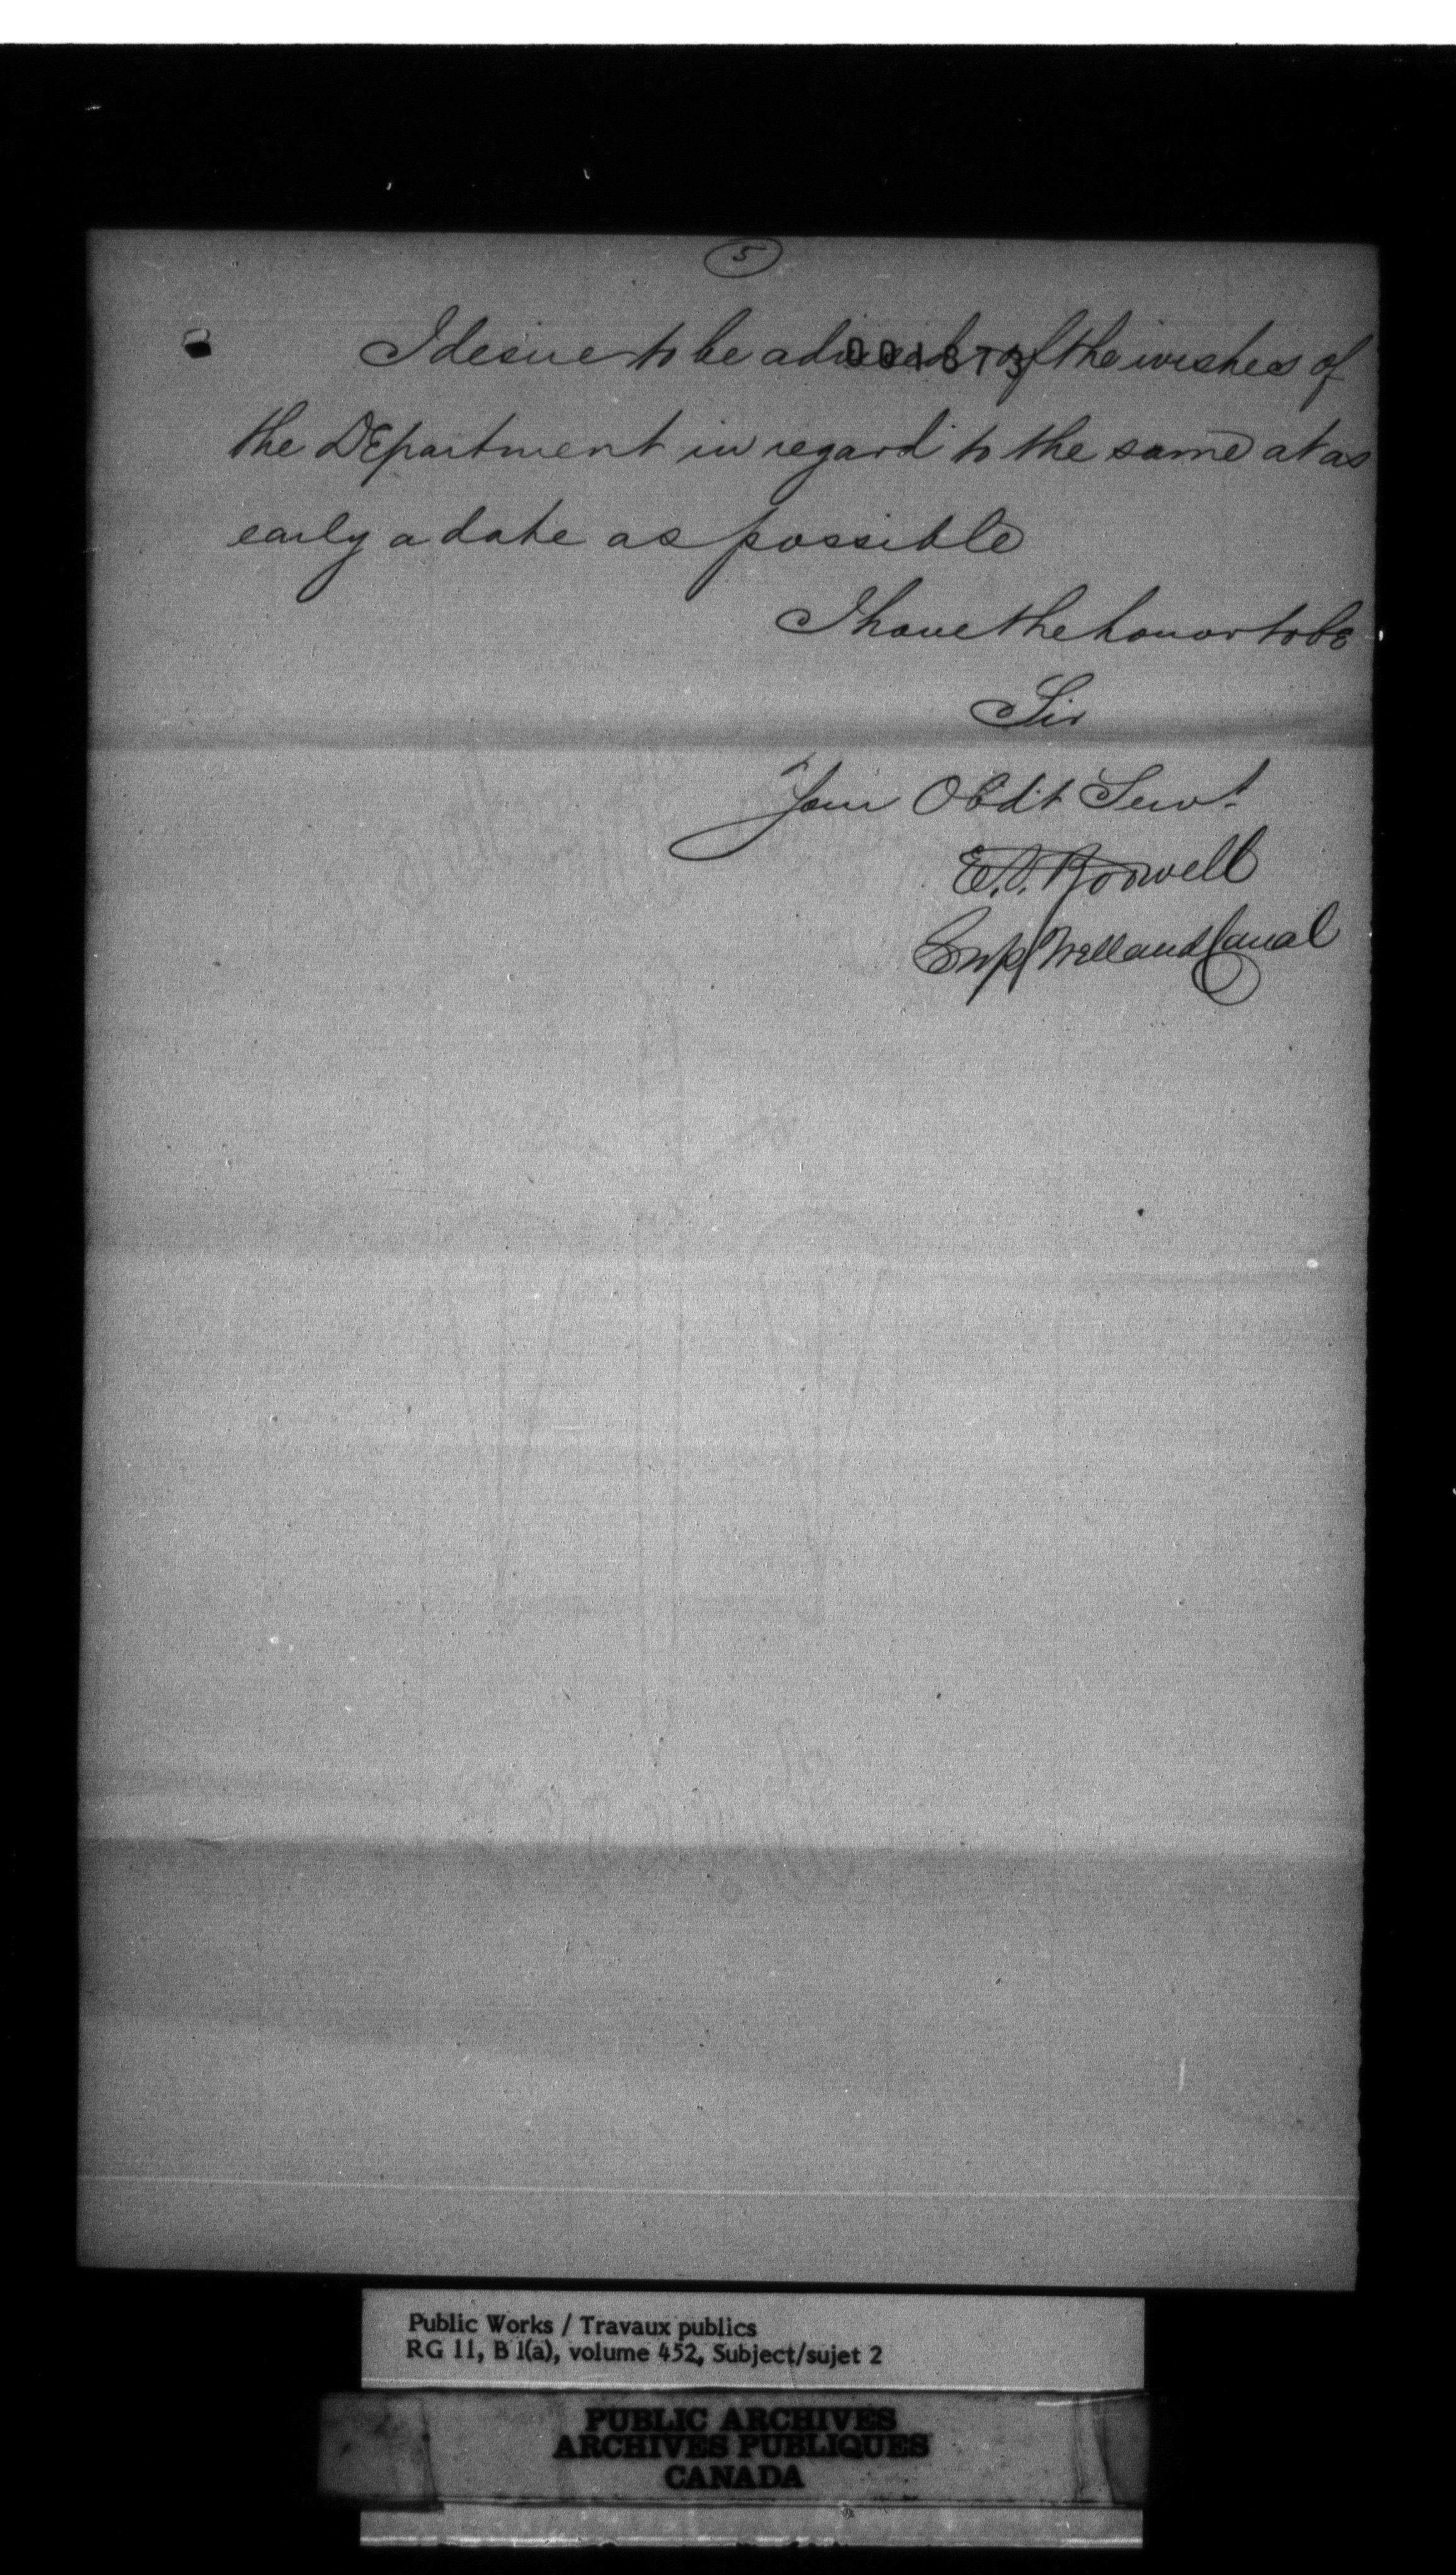 5
I desire to be advised of the wishes of
001873
the Department in regard to the same at as
early a date as possible
I have the honor to be
Sir
Your Obdt Servt
E. V. Bodwell
Supt Welland Canal
Public Works / Travaux publics
RG 11, B 1(a), volume 452, Subject/sujet 2
PUBLIC ARCHIVES
ARCHIVES PUBLIQUES
CANADA